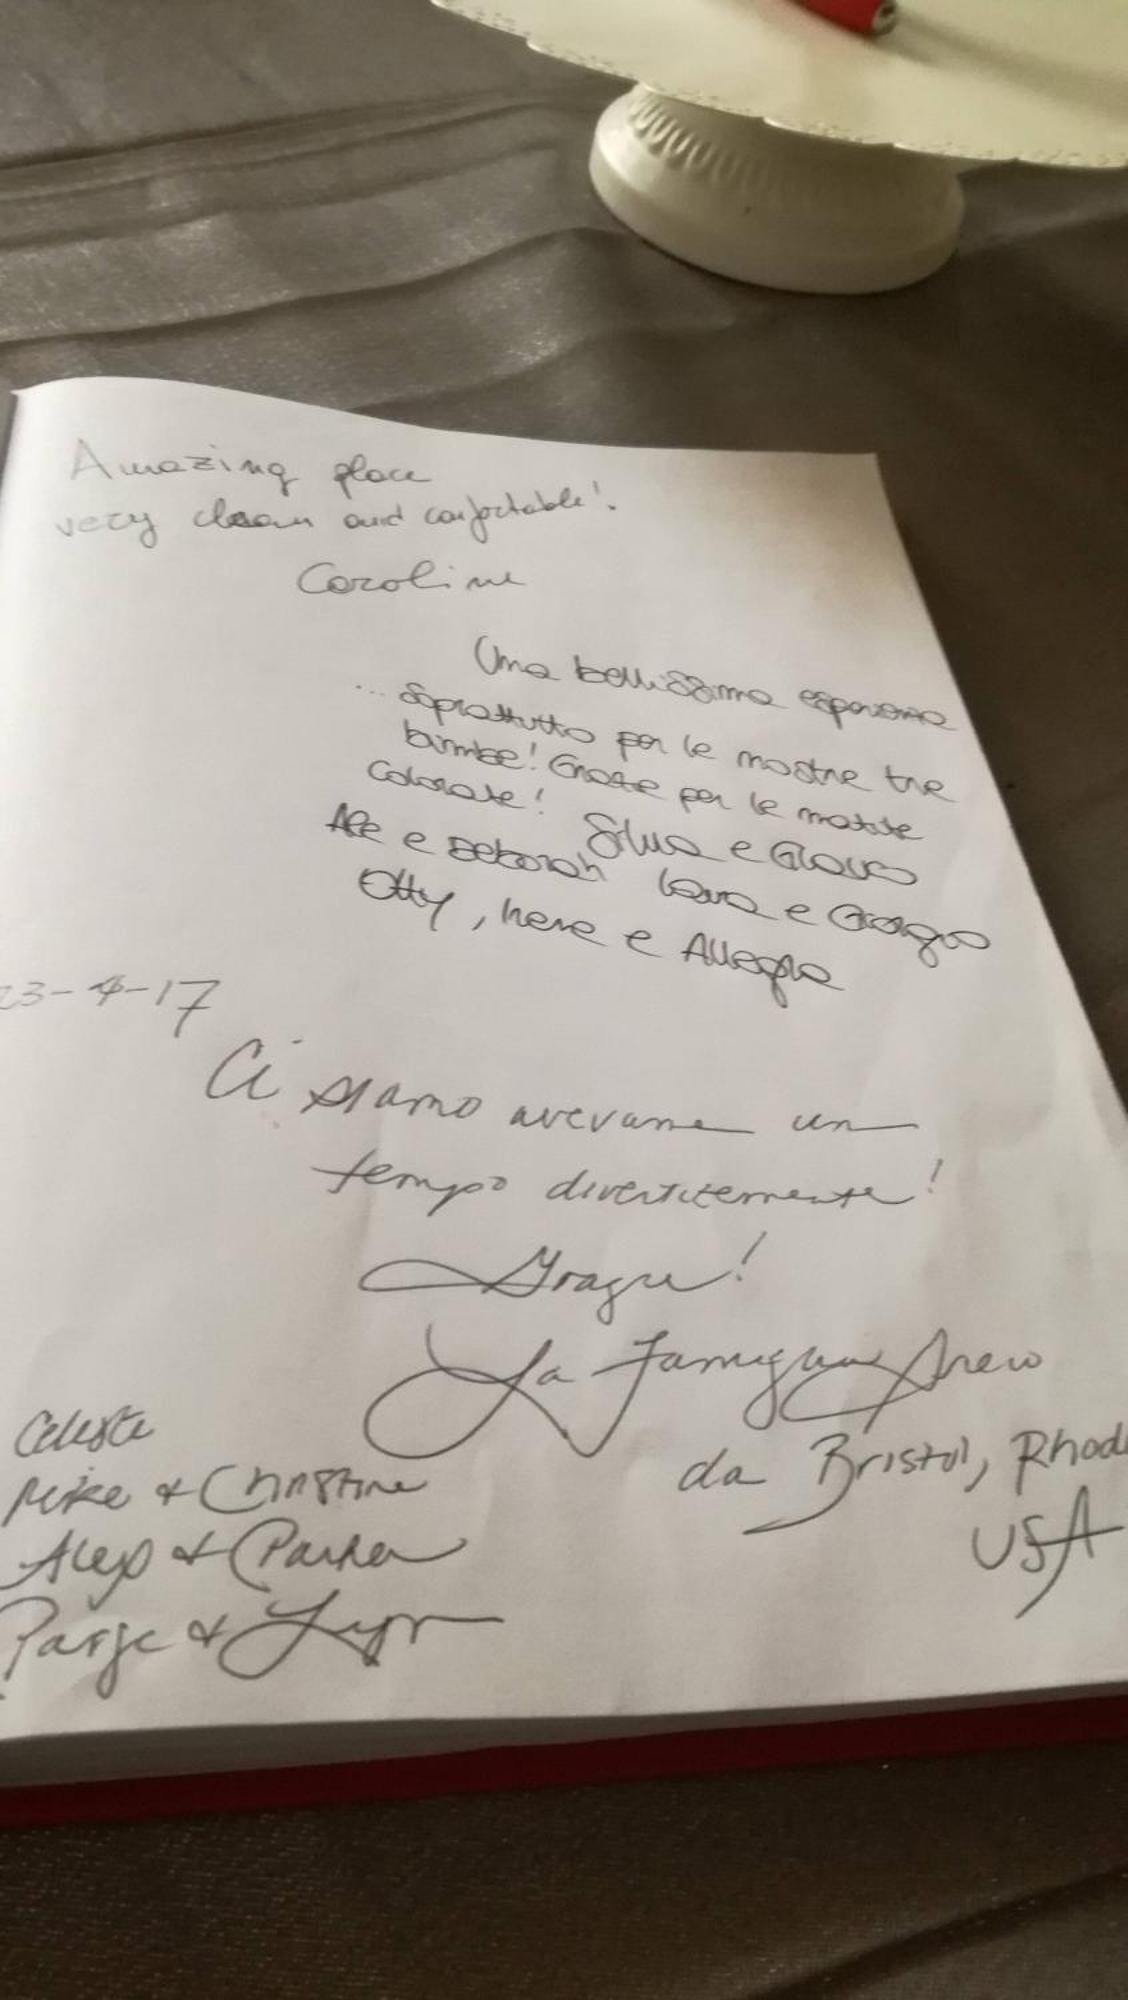 Amazing place
very clean and confortable!
Caroline
Una bellissima esperienza
... soprattutto per le nostre tre
bimbe! Grazie per le matite
colorate! Silvia e Glauco
Ale e Deborah Lara e Giorgio
Otty, Nene e Allegra
23-4-17
Ci siamo avevame un
tempo divertitemente!
Grazie!
La Famiglia
da Bristol, Rhod
USA
Celeste
Mike & Christine
Alex & Parker
Paige &